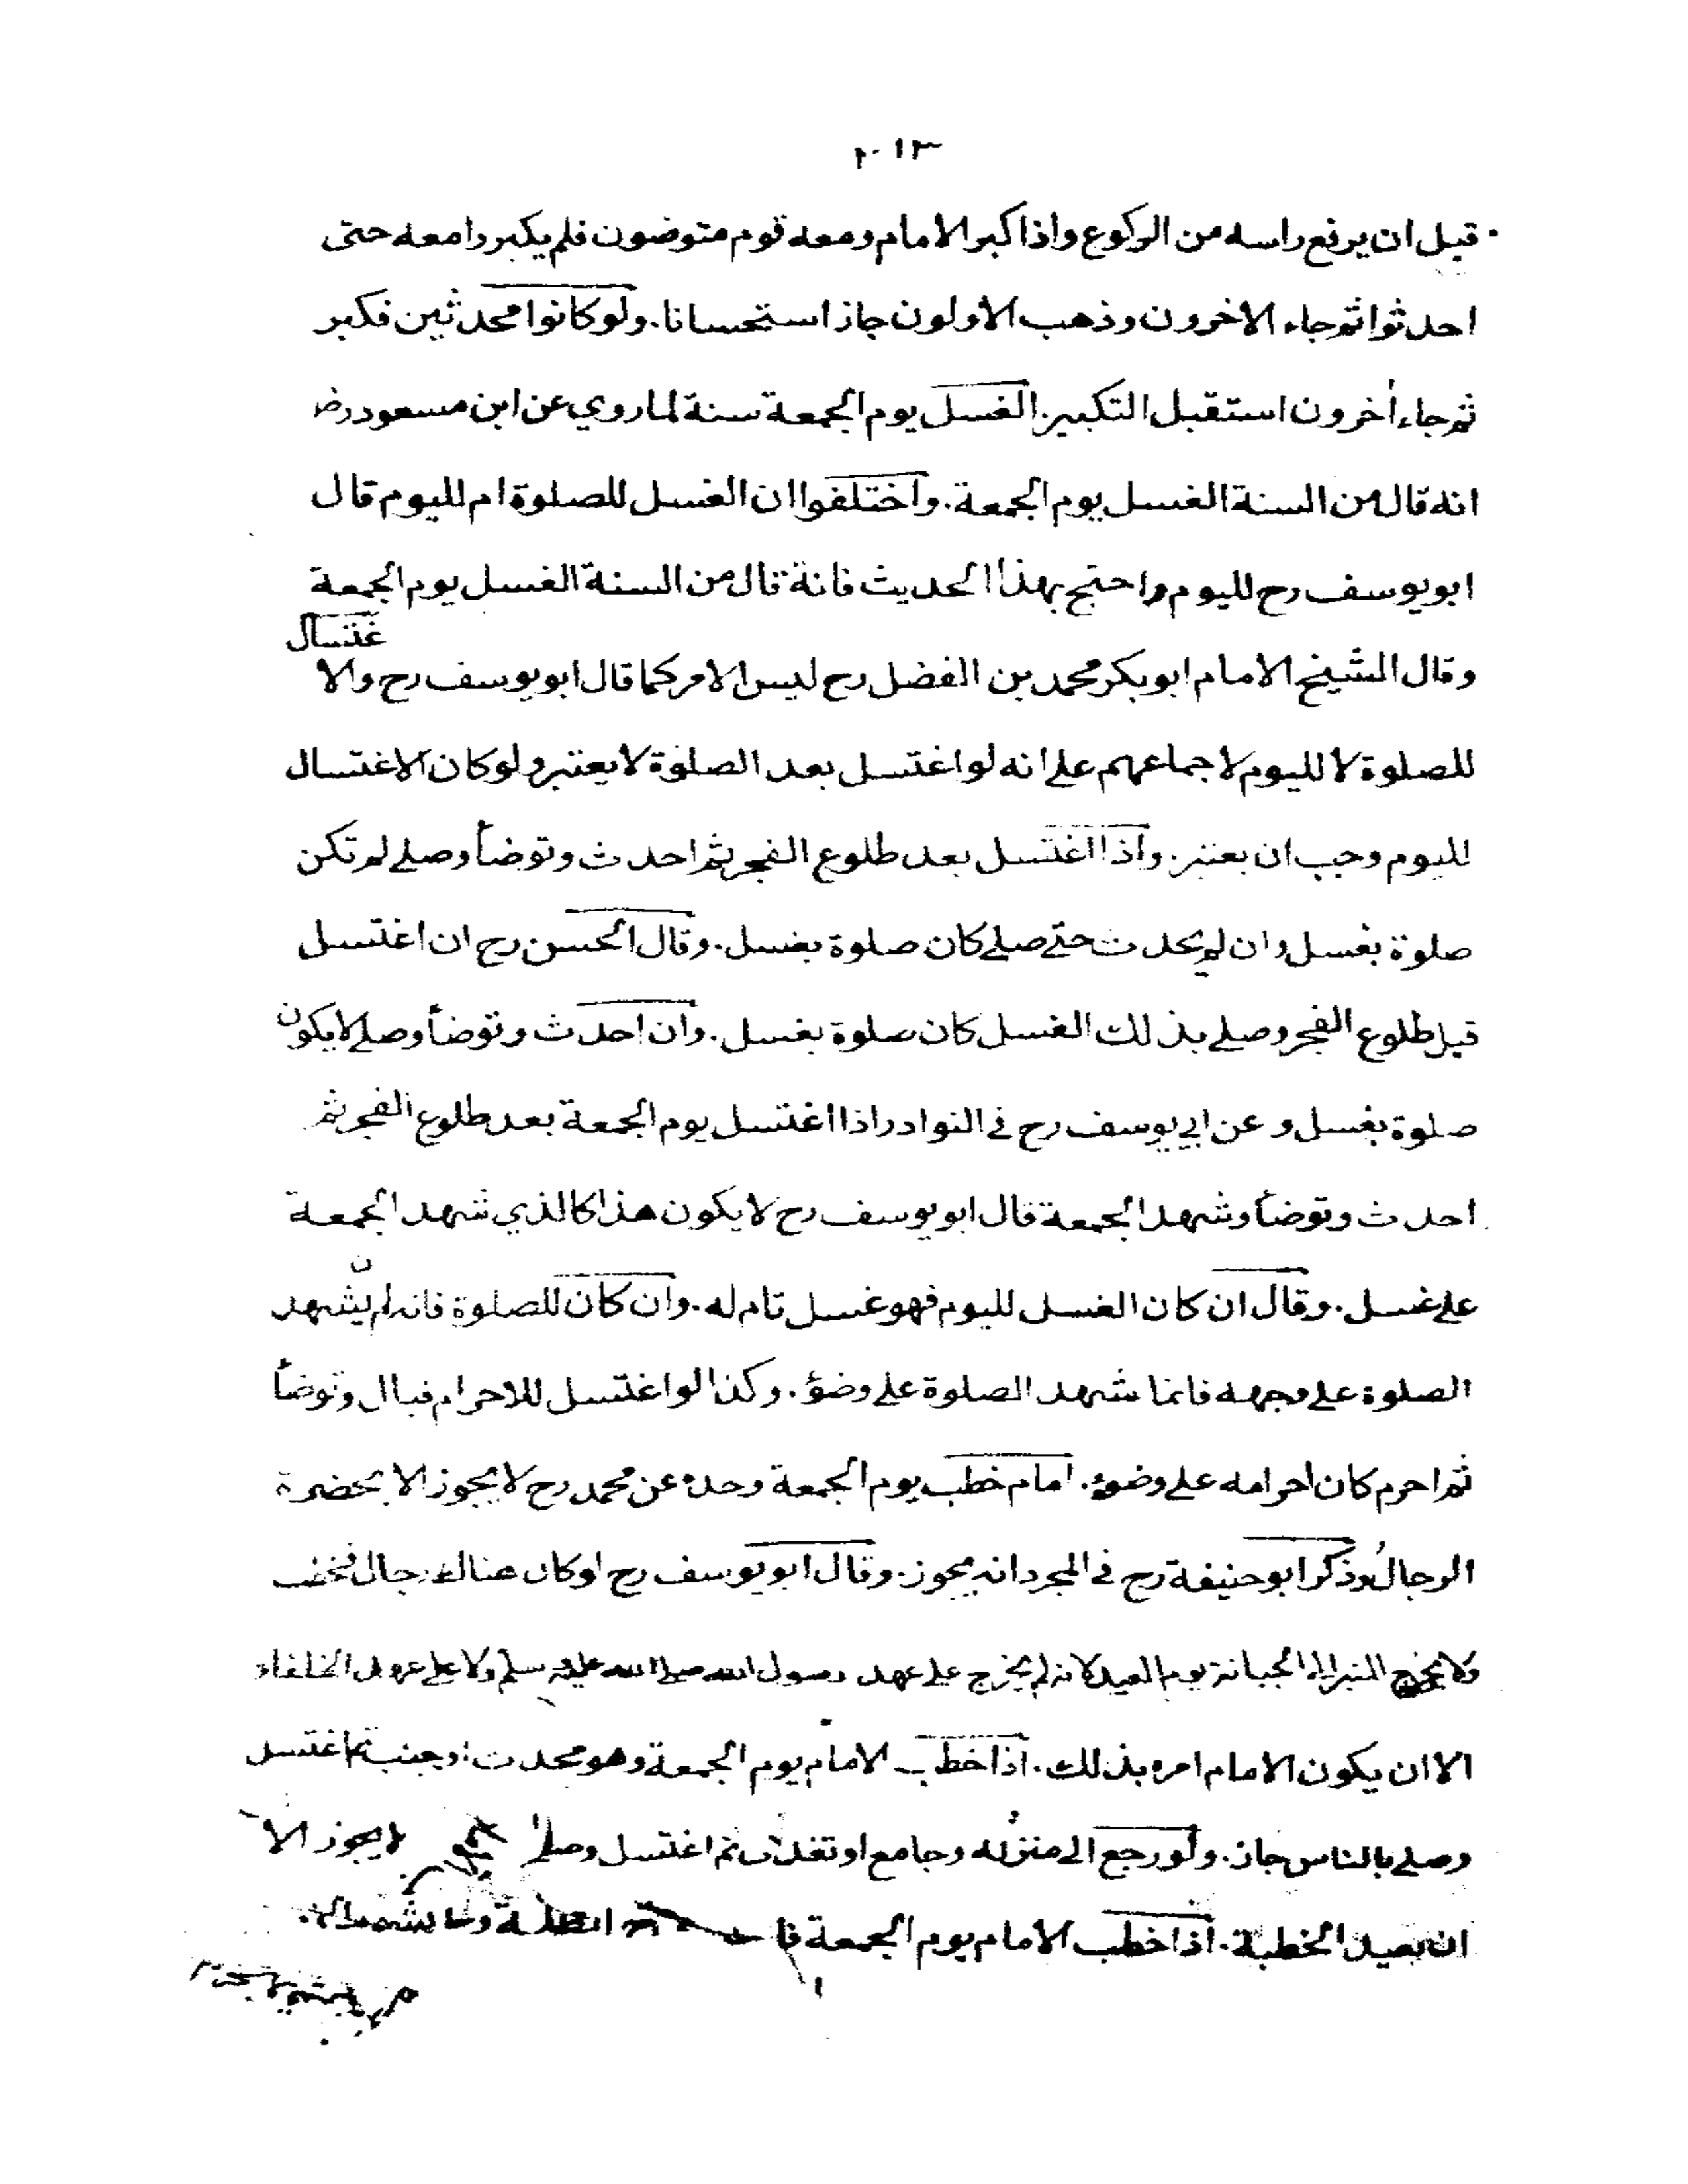 ٢٠١٣
قبل ان يرفع راسه من الركوع واذا كبر الامام ومعه قوم متوضون فلم يكبروا معه حتى
احدثوا ثم جاء الاخرون وذهب الاولون جاز استحسانا. ولو كانوا محدثين فكبر
ثم جاء أخرون استقبل التكبير. الغسل يوم الجمعة سنة لما روي عن ابن مسعود رض
انه قال من السنة الغسل يوم الجمعة. واختلفوا ان الغسل للصلوة ام لليوم قال
ابو يوسف رح لليوم واحتج بهذا الحديث فانه قال من السنة الغسل يوم الجمعة
وقال الشيخ الامام ابو بكر محمد بن الفضل رح ليس الامر كما قال ابو يوسف رح والاغتسال
للصلوة لا لليوم لاجماعهم على انه لو اغتسل بعد الصلوة لا يعتبر ولو كان الاغتسال
لليوم وجب ان يعتبر. واذا اغتسل بعد طلوع الفجر ثم احدث وتوضأ وصلى لم تكن
صلوة بغسل وان لم يحدث حتى صلى كان صلوة بغسل. وقال الحسن رح ان اغتسل
قبل طلوع الفجر وصلى بذلك الغسل كان صلوة بغسل. وان احدث وتوضأ وصلى لا يكون
صلوة بغسل وعن ابي يوسف رح في النوادر اذا اغتسل يوم الجمعة بعد طلوع الفجر ثم
احدث وتوضأ وشهد الجمعة قال ابو يوسف رح لا يكون هذا كالذي شهد الجمعة
على غسل. وقال ان كان الغسل لليوم فهو غسل تام له. وان كان للصلوة فانه لم يشهد
الصلوة على وجهه فانما شهد الصلوة على وضؤ. وكذا لو اغتسل للاحرام فبال وتوضأ
ثم احرم كان احرامه على وضوء. امام خطب يوم الجمعة وحده عن محمد رح لا يجوز الا بحضرة
الرجال وذكر ابو حنيفة رح في المجرد انه يجوز. وقال ابو يوسف رح لو كان هناك رجال
ولا يخرج المنبر الى الجبانة يوم العيد لانه لم يخرج على عهد رسول الله صلى الله عليه وسلم ولا على عهد الخلفاء
الا ان يكون الامام امره بذلك. اذا خطب الامام يوم الجمعة وهو محدث او جنب ثم اغتسل
وصلى بالناس جاز. ولو رجع الى منزله وجامع او تغدى ثم اغتسل وصلى لا يجوز الا
ان يعيد الخطبة. اذا خطب الامام يوم الجمعة